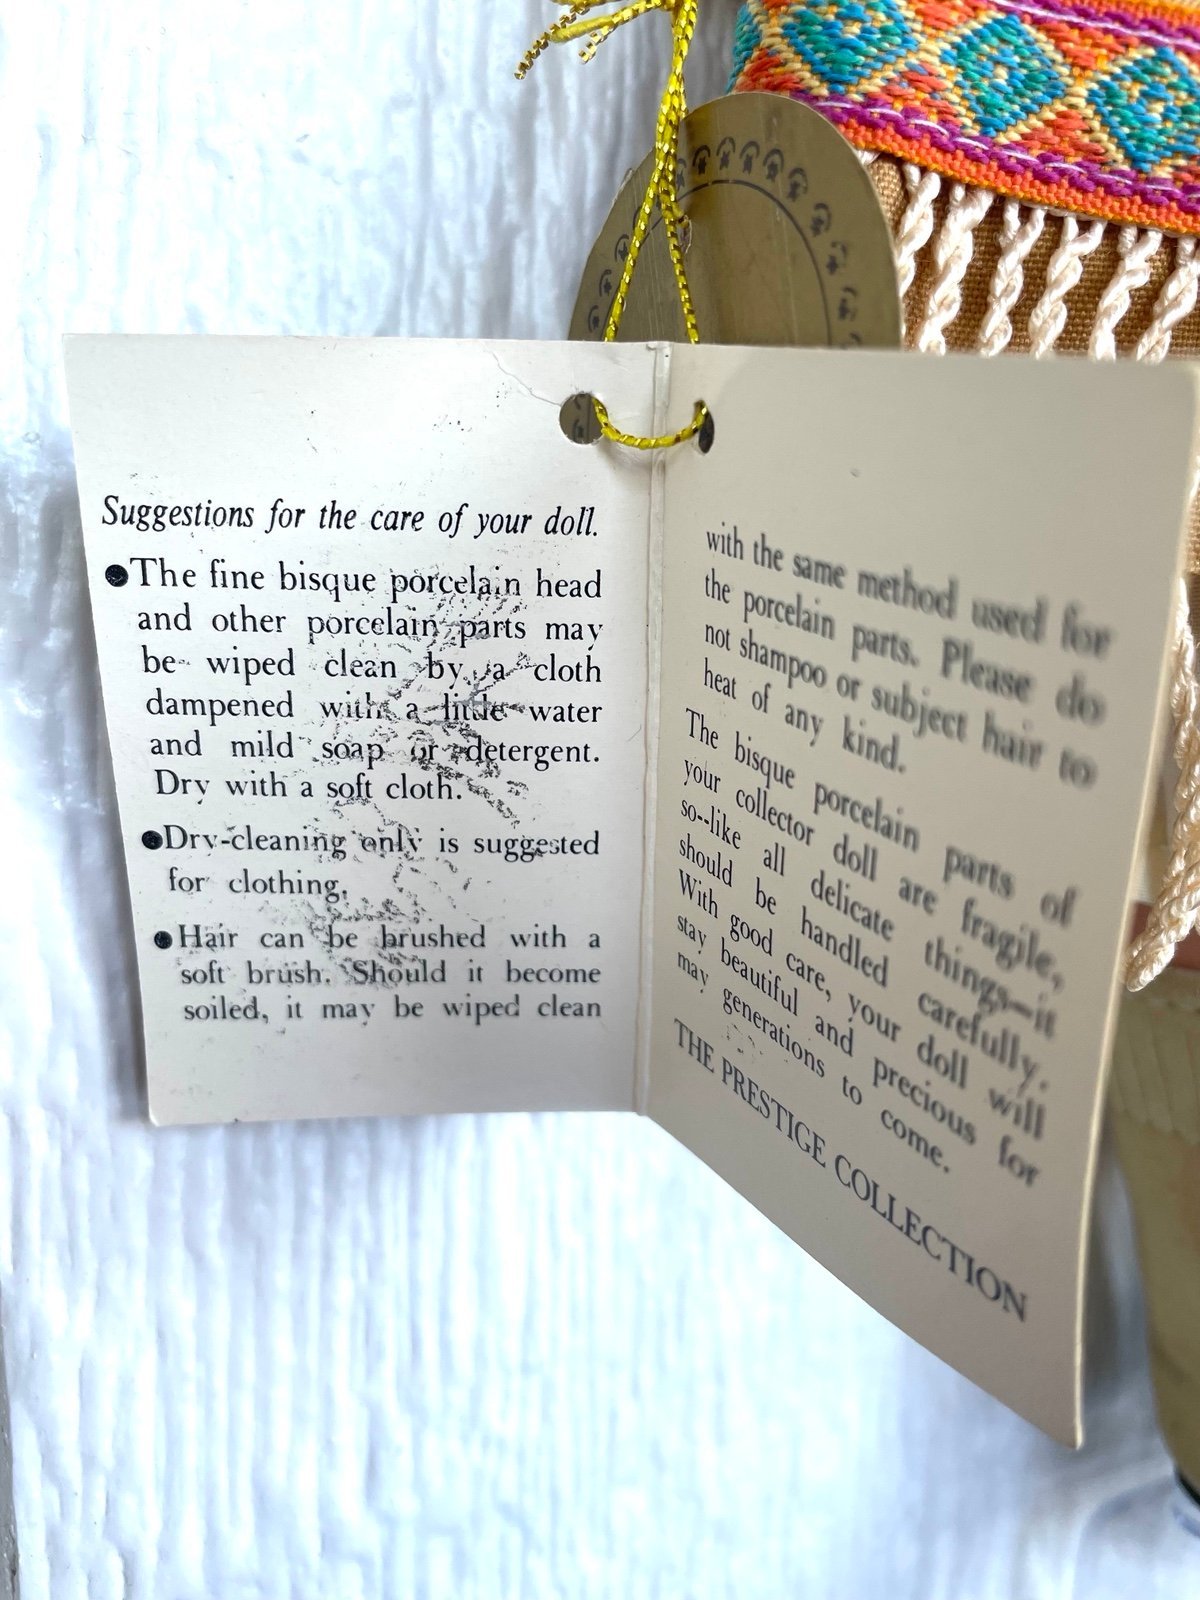 Suggestions for the care of your doll.
●The fine bisque porcelain head
and other porcelain parts may
be wiped clean by a cloth
dampened with a little water
and mild soap or detergent.
Dry with a soft cloth.
●Dry-cleaning only is suggested
for clothing.
●Hair can be brushed with a
soft brush. Should it become
soiled, it may be wiped clean
with the same method used for
the porcelain parts. Please do
not shampoo or subject hair to
heat of any kind.
The bisque porcelain parts of
your collector doll are fragile,
so--like all delicate things—it
should be handled carefully.
With good care, your doll will
stay beautiful and precious for
may generations to come.
THE PRESTIGE COLLECTION